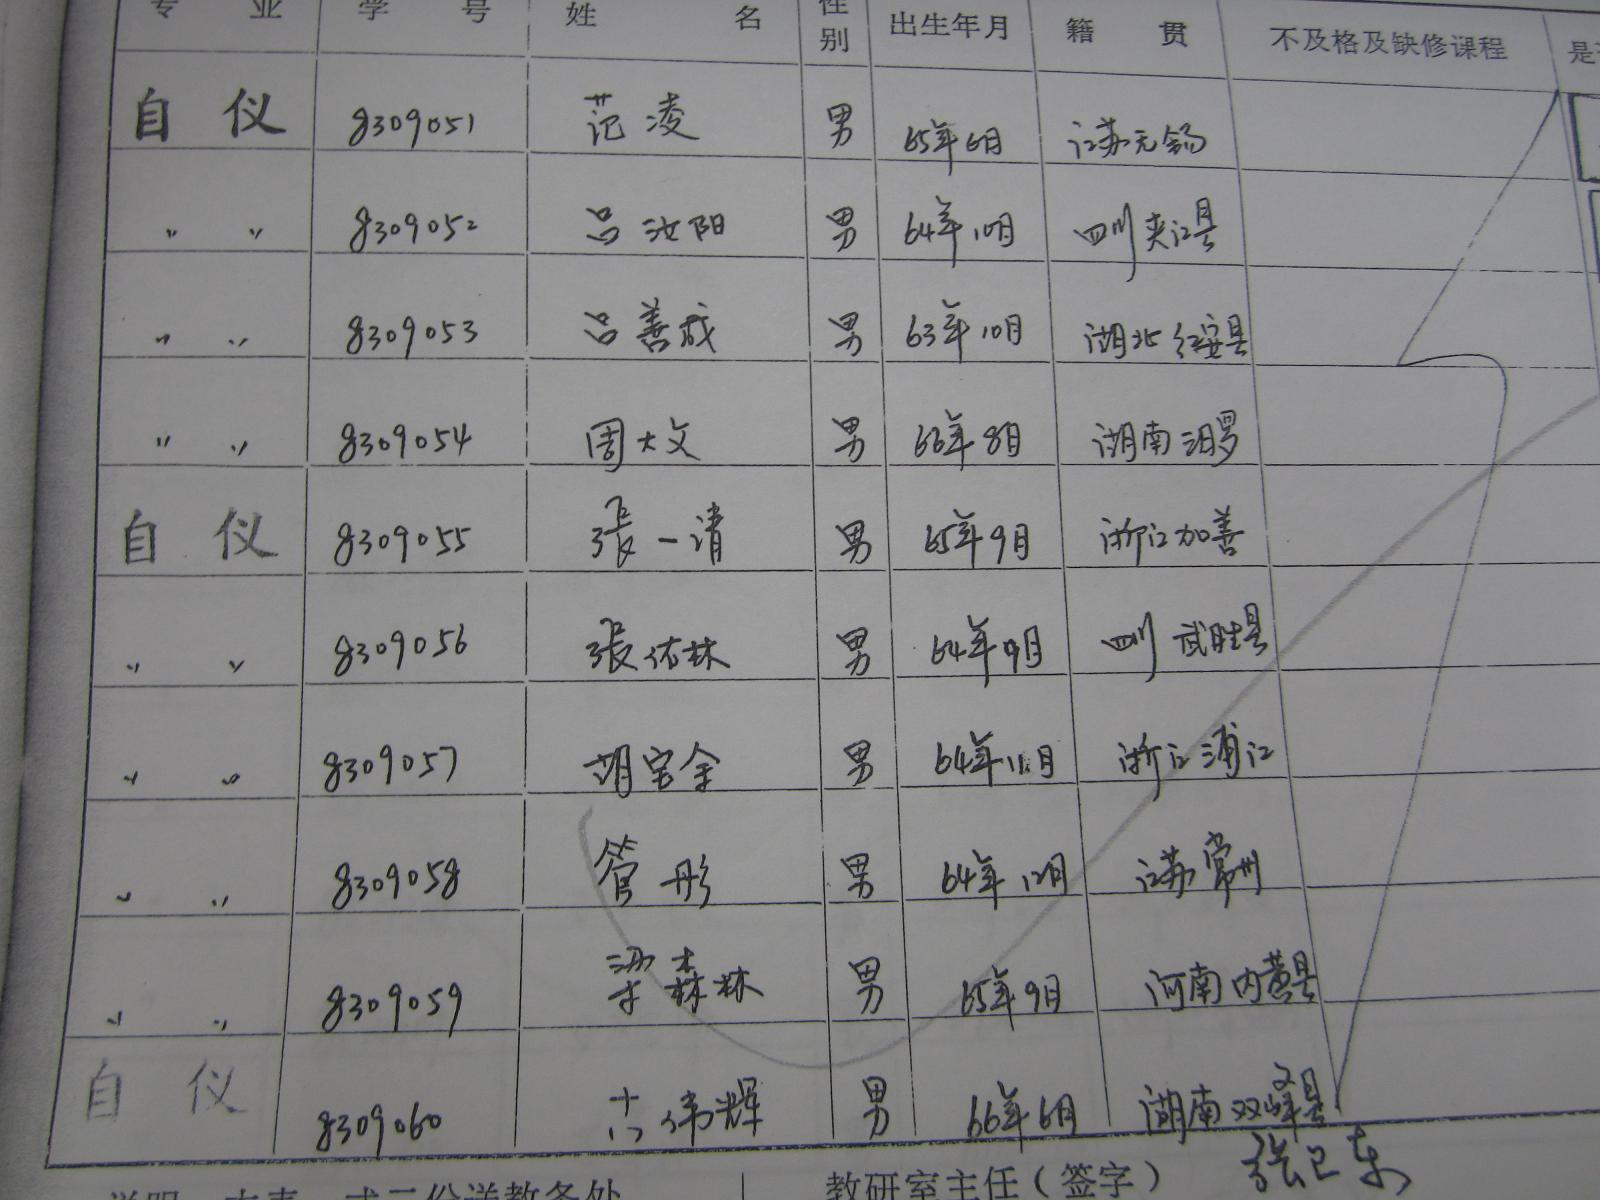 专 业 学 号 姓 名 性别 出生年月 籍 贯 不及格及缺修课程 是
自 仪 8309051 范凌 男 65年6月 江苏无锡
〃 〃 8309052 吕汝阳 男 64年10月 四川夹江县
〃 〃 8309053 吕善成 男 63年10月 湖北红安县
〃 〃 8309054 周大文 男 66年8月 湖南汨罗
自 仪 8309055 張一清 男 65年9月 浙江加善
〃 〃 8309056 張佑林 男 64年9月 四川武胜县
〃 〃 8309057 胡宝金 男 64年11月 浙江浦江
〃 〃 8309058 管彤 男 64年12月 江苏常州
〃 〃 8309059 梁森林 男 65年9月 河南内黄县
自 仪 8309060 伟辉 男 66年6月 湖南双峰县
说明 本表一式二份送教务处 教研室主任（签字）